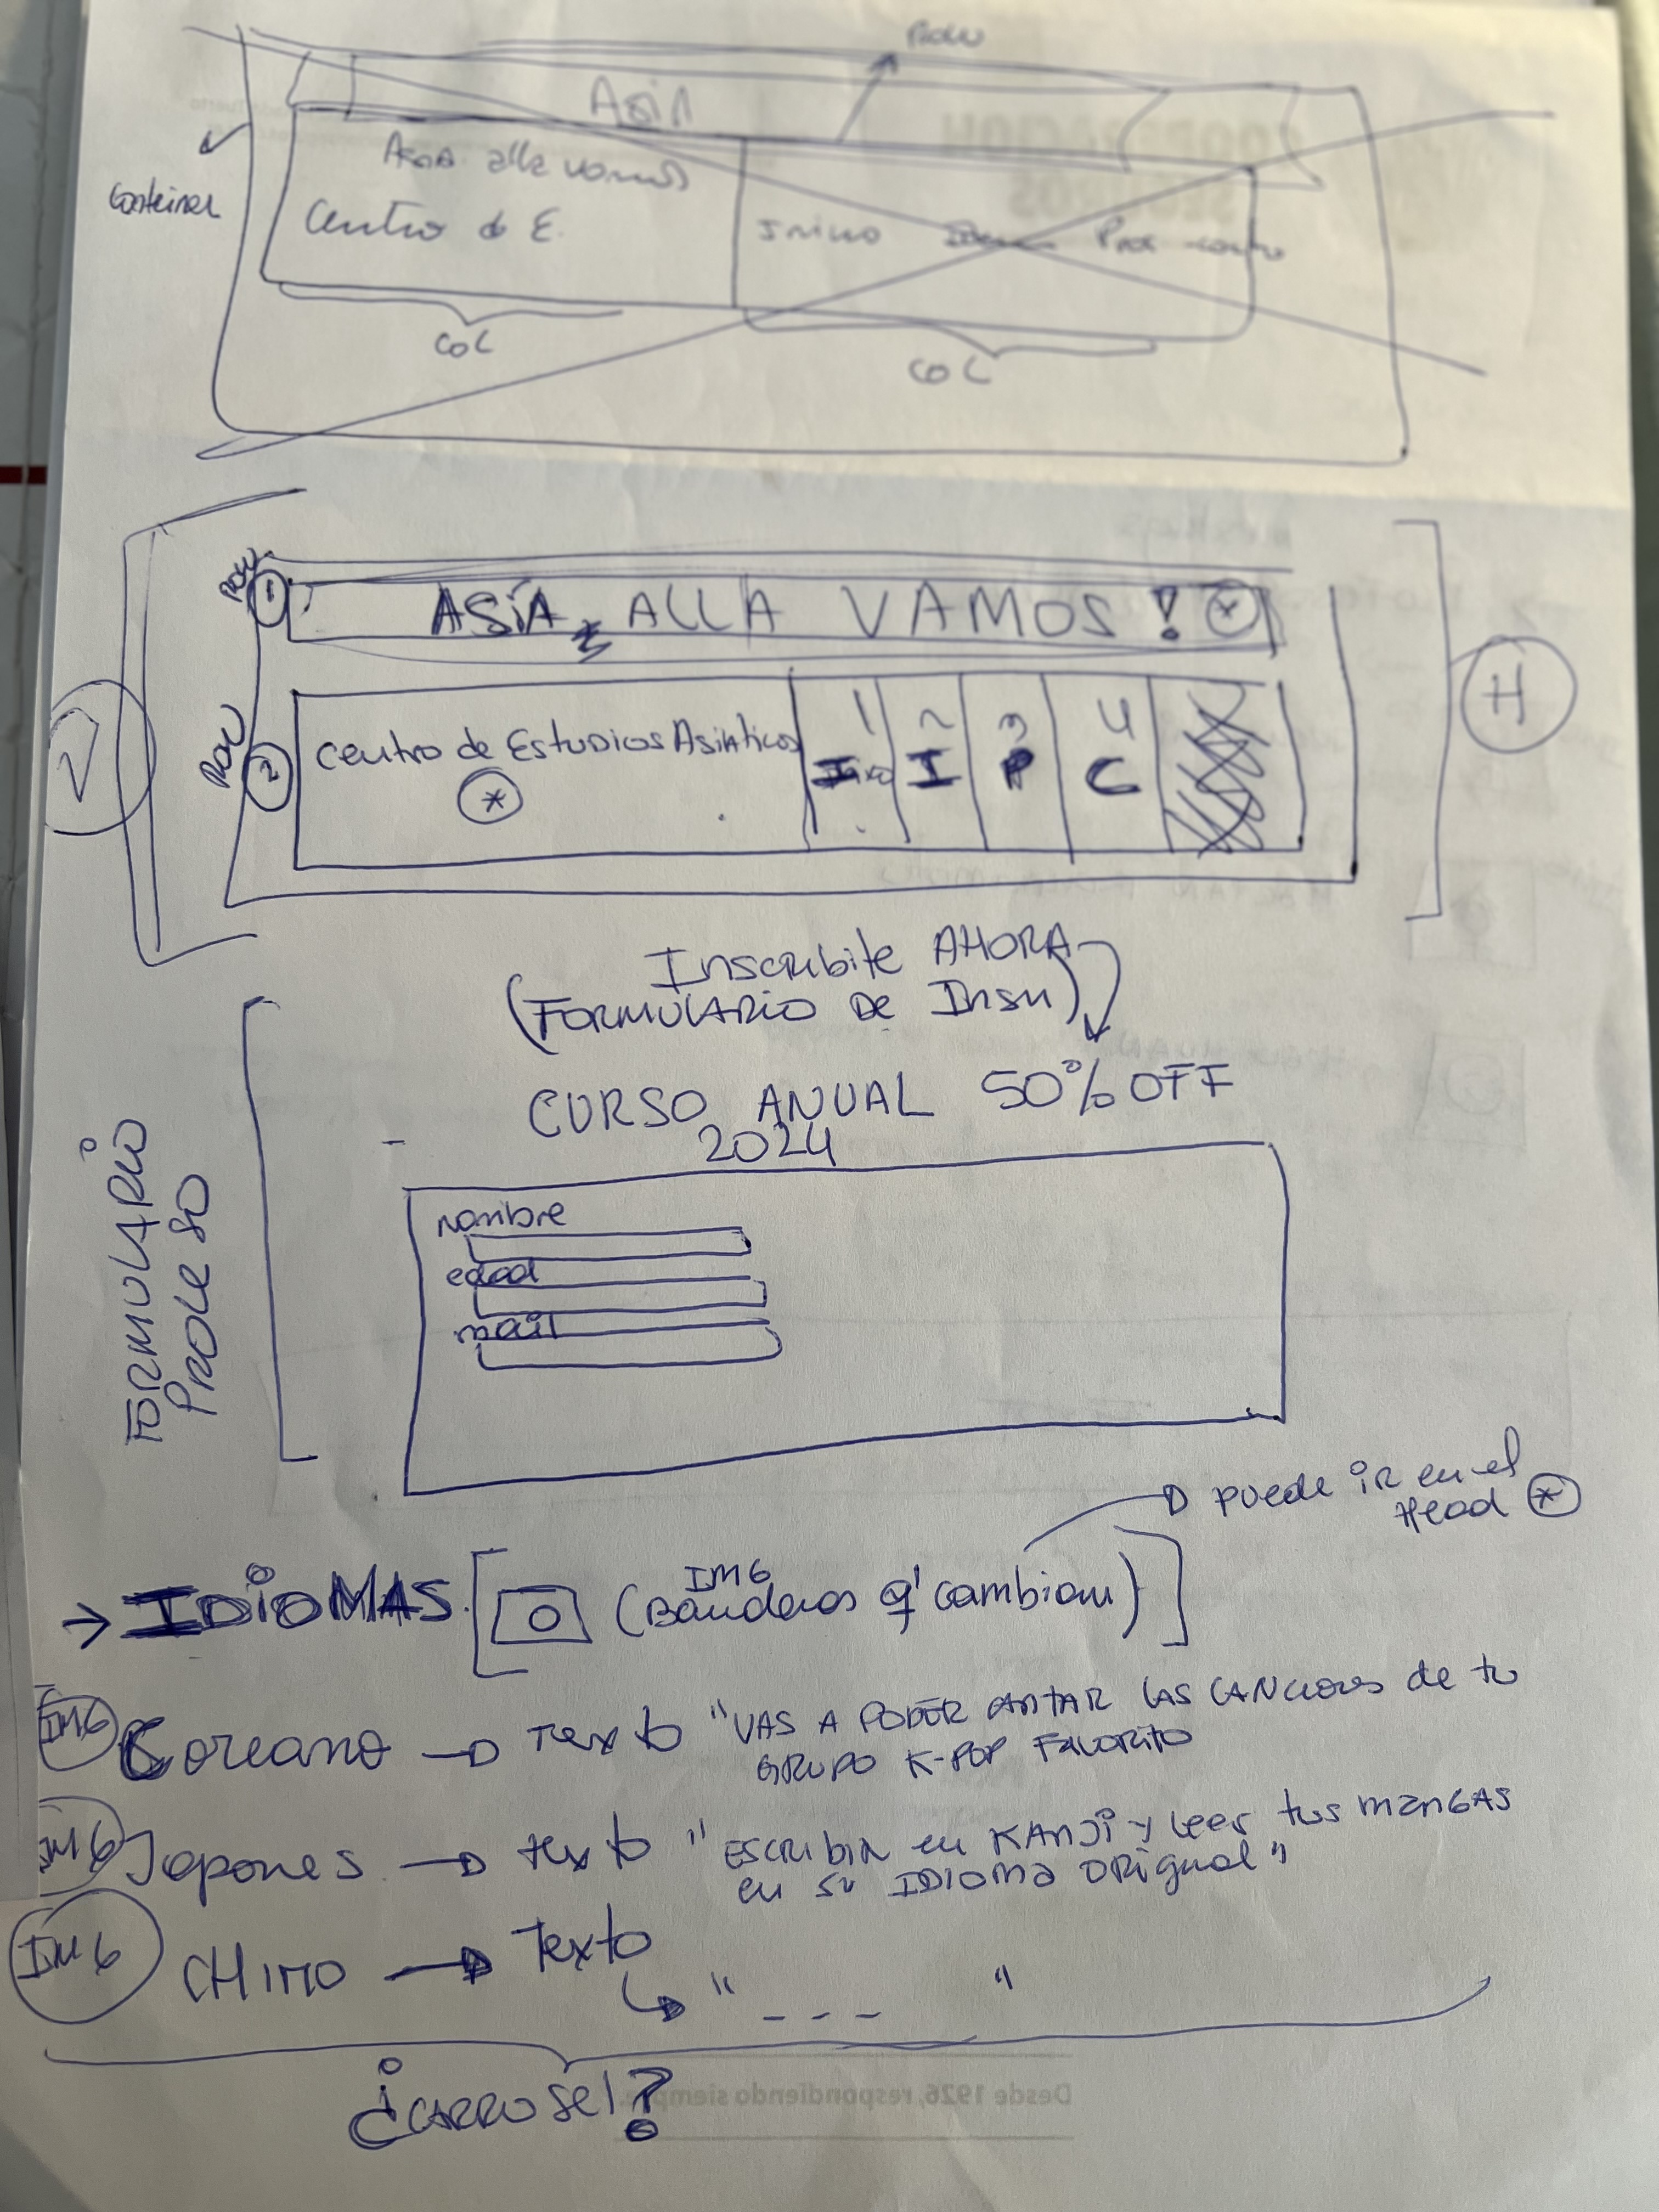 ROW
ASIA
Asia alla vamos
Conteiner
Centro de E.
Inicio
COL
COL
ROW
1
ASÍA, ALLA VAMOS! *
2
H
ROW
2
Centro de Estudios Asiáticos
*
1 2 3 4
I I P C
Inscribite AHORA
(FORMULARIO DE Insu)
CURSO ANUAL 50% OFF
2024
FORMULARIO
nombre
edad
mail
puede ir en el
Head *
→ IDIOMAS
IMG
(Banderas q' cambian)
IMG Coreano → Texto "VAS A PODER CANTAR LAS CANCIONES de tu
GRUPO K-POP FAVORITO
IMG Japones → texto "ESCRIBIR en KANJI y Leer tus mangas
en su IDIOMA ORIGINAL"
IMG CHINO → Texto
" - - - "
¿CARROSEL?
Desde 1926, respondiendo siempre.